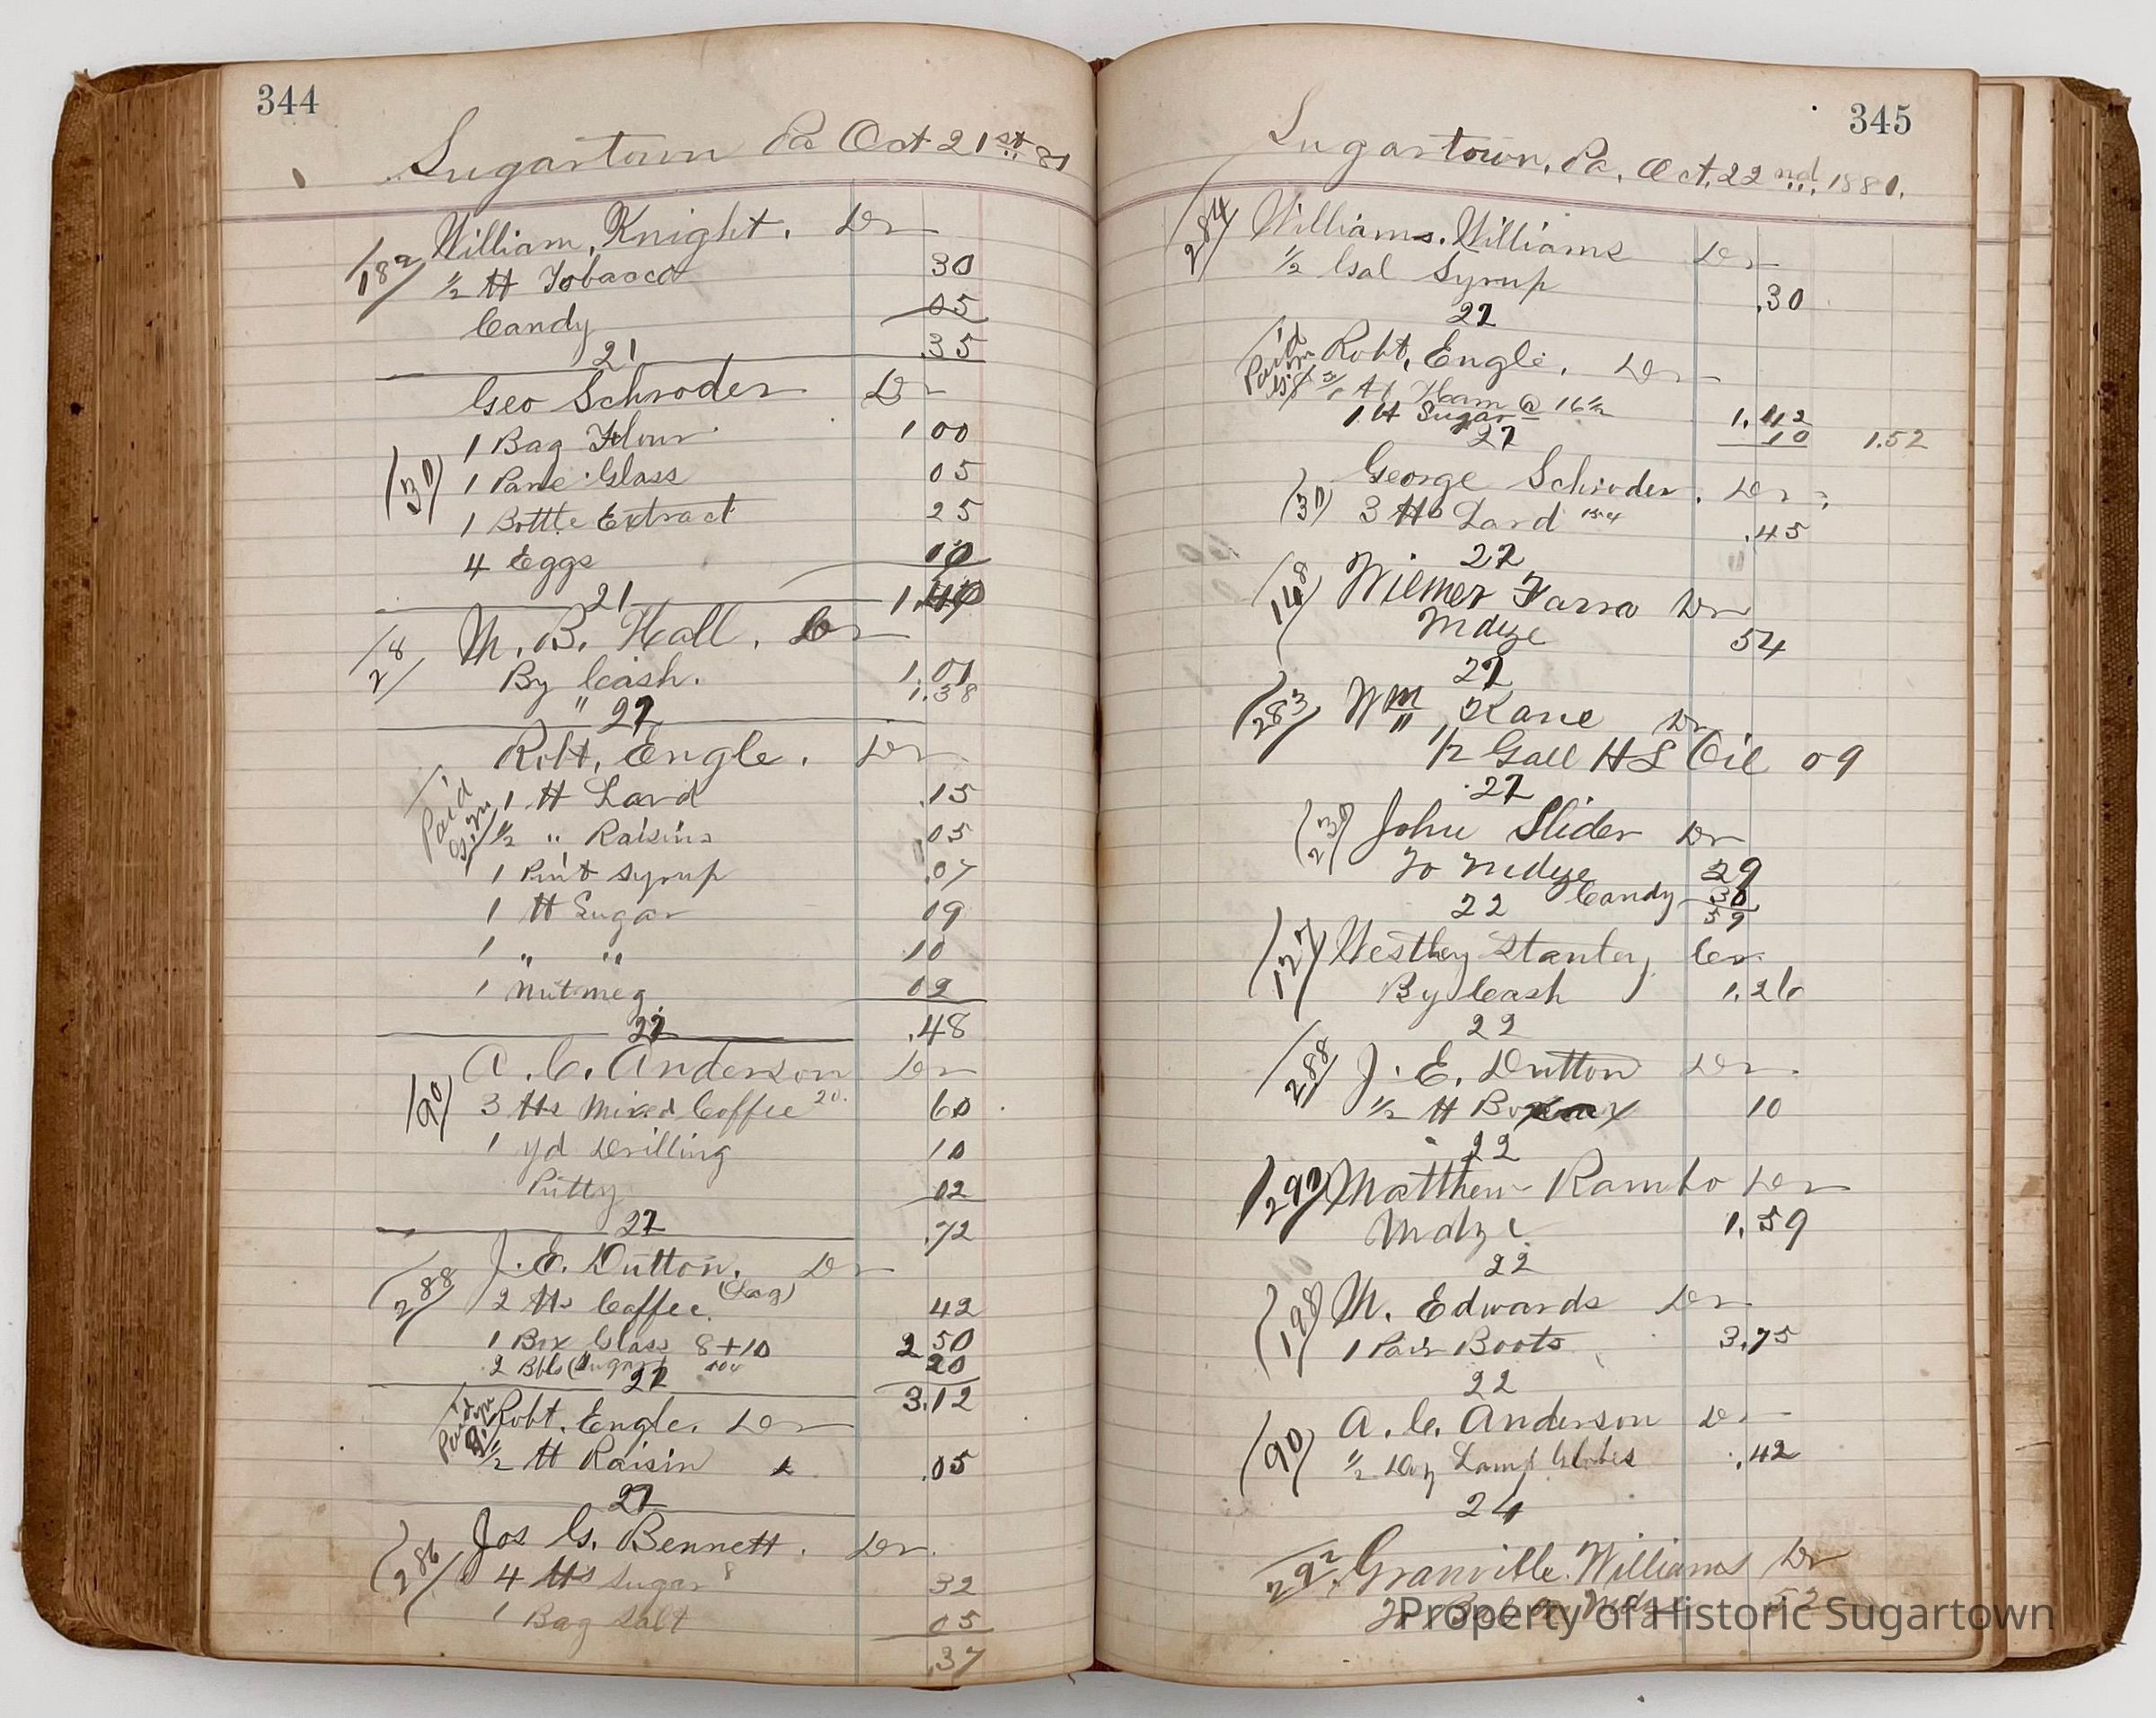 344
Sugartown Pa Oct 21st 81
182 William, Knight. Dr
1/2 lb Tobacco 30
Candy 05
21 .35
Geo Schroder Dr
1 Bag Flour 1 00
(31) 1 Pane Glass 05
1 Bottle Extract 25
4 Eggs 10
21 1.40
28 M. B. Hall. Cr
By Cash. 1.01
" 1.38
22
Robt, Engle. Dr
Paid 1 lb Lard .15
1/2 " Raisins .05
1 Pint Syrup .07
1 lb Sugar 09
1 " " 10
1 Nutmeg 02
22 .48
A. C. Anderson Dr
(90) 3 lbs Mixed Coffee 20. 60
1 yd Drilling 10
Putty 02
22 .72
J. E. Dutton. Dr
(288) 2 lbs Coffee (Lag) 42
1 Box Glass 8+10 2 50
2 Bbls (Sugar) 20
22 3.12
Paid Robt. Engle. Dr
1/2 lb Raisin .05
22
(286) Jos G. Bennett. Dr.
4 lbs Sugar 8 32
1 Bag Salt 05
.37
345
Sugartown, Pa, Oct, 22nd, 1881.
284 Williams. Williams Dr
1/2 Gal Syrup .30
22
Paid Robt, Engle. Dr
lb Ham @ 16 1/2 1.42
1 lb Sugar 10 1.52
22
George Schroder. Dr
(31) 3 lbs Lard .45
22
(148) Wilmer Farra Dr
Mdze 54
22
(283) Wm Kane Dr
1/2 Gall HL Oil 09
22
(23) John Slider Dr
To Mdze 29
22 Candy 30
59
(127) Westley Stanley Cr
By Cash 1.26
22
(288) J. E. Dutton Dr.
1/2 lb 10
22
(291) Matthew Rambo Dr
Mdze 1.59
22
(198) M. Edwards Dr
1 Pair Boots 3.75
22
A. C. Anderson Dr
(90) 1/2 Doz Lamp Globes .42
24
292 Granville. Williams Dr
Property of Historic Sugartown